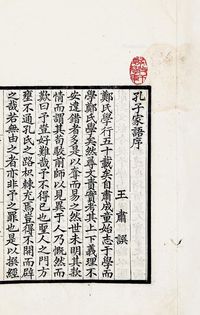 孔子家語序
王肅譔
鄭氏學行五十載矣自肅成童始志于學而
學鄭氏學矣然尋文責實考其上下義理不
安違錯者多是以奪而易之然世未明其款
情而謂其苟駮前師以見異于人乃慨然而
歎曰予豈好難哉予不得已也聖人之門方
壅不通孔氏之路枳棘充焉豈得不開而辟
之哉若無由之者亦非予之罪也是以撰經